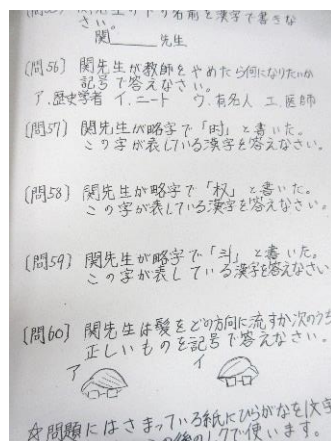 先生の下の名前を漢字で書きな
さい。
関＿＿＿先生
〔問56〕 関先生が教師をやめたら何になりたいか
記号で答えなさい。
ア.歴史学者 イ.ニート ウ.有名人 エ.医師
〔問57〕 関先生が略字で「时」と書いた。
この字が表している漢字を答えなさい。
〔問58〕 関先生が略字で「杈」と書いた。
この字が表している漢字を答えなさい。
〔問59〕 関先生が略字で「斗」と書いた。
この字が表している漢字を答えなさい
〔問60〕 関先生は髪をどの方向に流すか次のうち
正しいものを記号で答えなさい。
ア イ
☆問題にはさまっている紙にひらがなを1文字
この後の 使います。